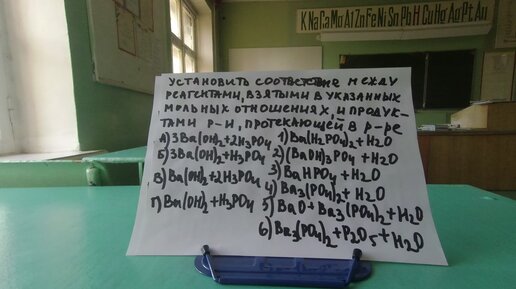 K Na Ca Mg Al Zn Fe Ni Sn Pb H Cu Hg Ag Pt Au
УСТАНОВИТЬ СООТВЕТСТВИЕ МЕЖДУ
РЕАГЕНТАМИ, ВЗЯТЫМИ В УКАЗАННЫХ
МОЛЬНЫХ ОТНОШЕНИЯХ, И ПРОДУК-
ТАМИ Р-И, ПРОТЕКАЮЩЕЙ В Р-РЕ
А) 3Ba(OH)2+2H3PO4 1) Ba(H2PO4)2+H2O
Б) 3Ba(OH)2+H3PO4 2) (BaOH)3PO4+H2O
3) BaHPO4+H2O
В) Ba(OH)2+2H3PO4 4) Ba3(PO4)2+H2O
Г) Ba(OH)2+H3PO4 5) BaO+Ba3(PO4)2+H2O
6) Ba3(PO4)2+P2O5+H2O